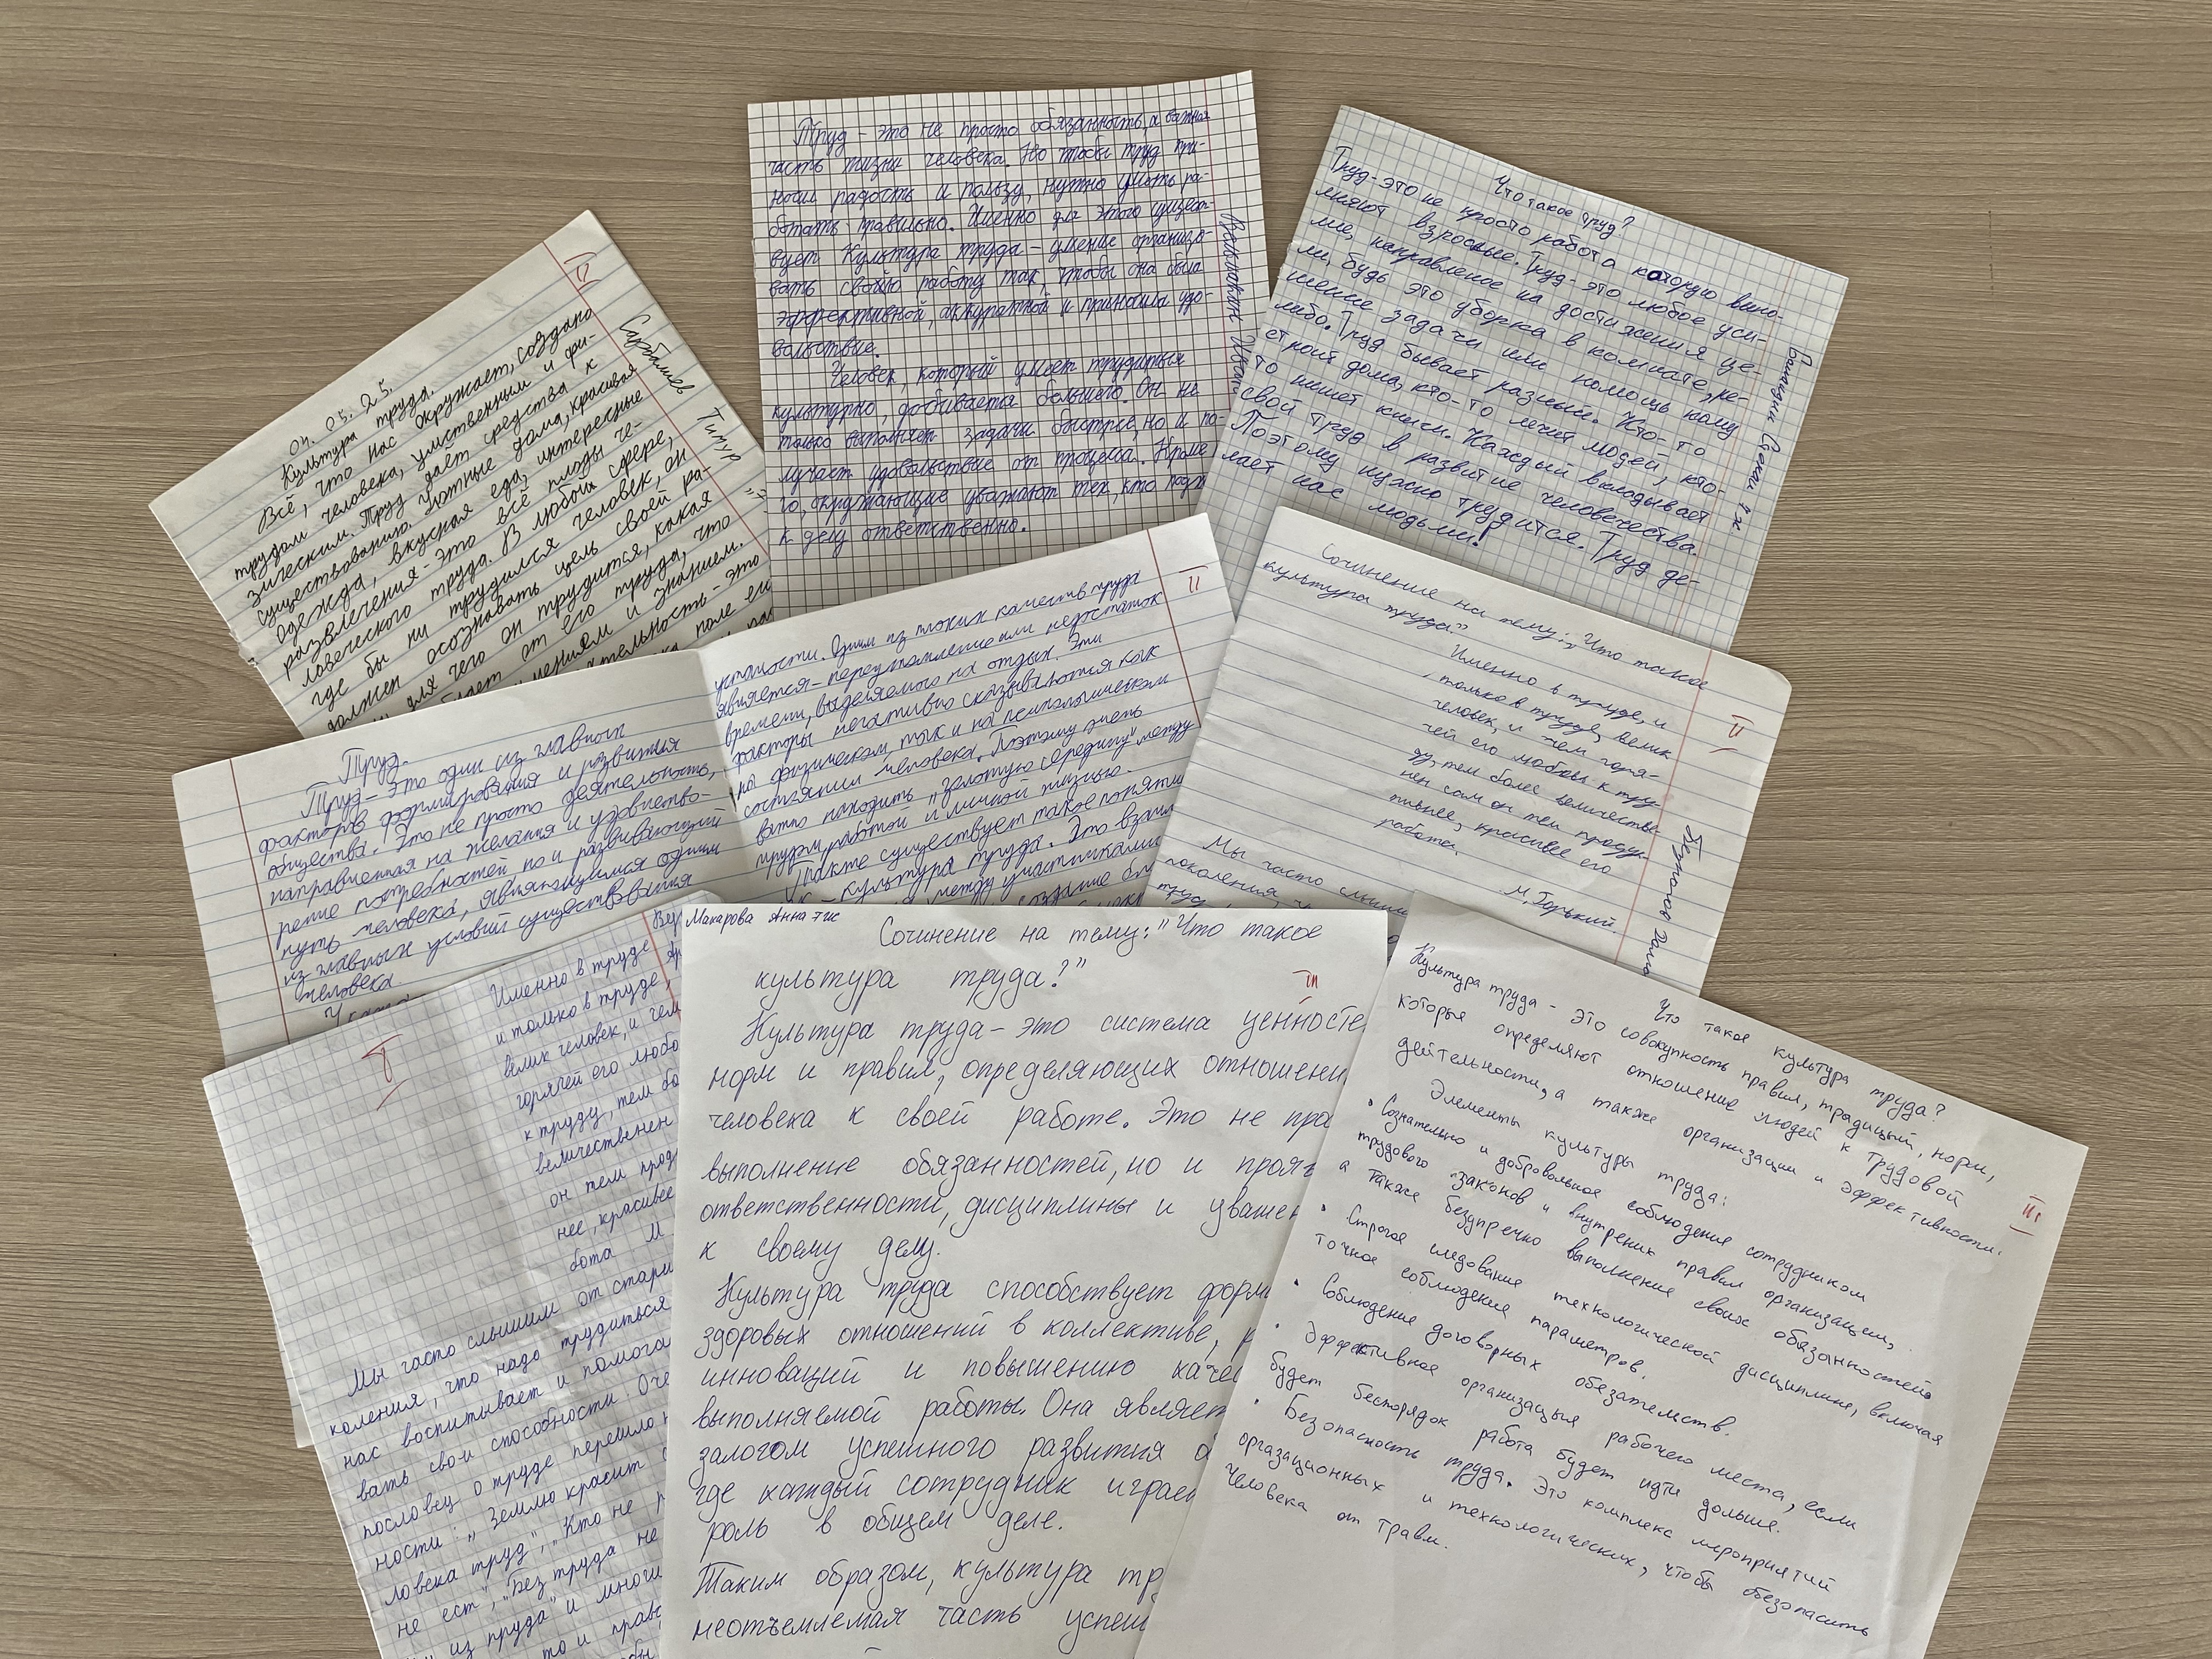 04. 03. 25.
Культура труда.
Всё, что нас окружает, создано
трудом человека, умственным и фи-
зическим. Труд даёт средства к
существованию. Уютные дома, красивая
одежда, вкусная еда, интересные
развлечения - это всё плоды че-
ловеческого труда. В любой сфере,
где бы ни трудился человек, он
должен осознавать цель своей ра-
для чего он трудится, какая
от его труда, что
умениям и знаниям.
это
Сарбашев Тимур
Труд - это не просто обязанность, а важная
часть жизни человека. Но чтобы труд при-
носил радость и пользу, нужно уметь ра-
ботать правильно. Именно для этого сущест-
вует Культура труда - умение организо-
вать свою работу так, чтобы она была
эффективной, аккуратной и приносила удо-
вольствие.
Человек, который умеет трудиться
культурно, добивается большего. Он не
только выполняет задачи быстрее, но и по-
лучает удовольствие от процесса. Кроме
го, окружающие уважают тех, кто подх
к делу ответственно.
Что такое труд?
Труд - это не просто работа которую выпо-
лняют взрослые. Труд - это любое уси-
лие, направленое на достижения це-
ли, будь это уборка в комнате, ре-
шение задачи или помощь кому
либо. Труд бывает разный. Кто-то
строит дома, кто-то лечит людей, кто-
то пишет книги. Каждый вкладывает
свой труд в развитие человечества.
Поэтому нужно трудится. Труд де-
лает нас людьми!
Труд.
Труд - Это один из главных
факторов формирования и развития
общества. Это не просто деятельность,
направленная на желания и удовлетво-
рение потребностей но и развивающий
путь человека, являющимся одним
из главных условий существования
человека
усталости. Одним из плохих качеств труда
является - переутомление или недостаток
времени, выделяемого на отдых. Эти
факторы негативно сказываются как
на физическом, так и на психологическом
состоянии человека. Поэтому очень
важно находить „золотую середину" между
трудом, работой и личной жизнью.
Также существует такое поняти
- культура труда. Это взаи
между участниками
создание бл
II
Сочинение на тему: „Что такое
культура труда"
Именно в труде, и
, только в труде, велик
человек, и чем горя-
чей его любовь к тру-
ду, тем более величестве-
нен сам он тем продук-
тивнее, красивее его
работа.
М. Горький.
Мы часто слыши
поколения, ч
II
Именно в труде
и только в труде,
велик человек, и чем
горячей его любо
к труду, тем бо
величественен
он тем прод
нее, красивее
бота М
Мы часто слышим от стари
коления, что надо трудиться
нас воспитывает и помога
вать свои способности Оче
пословец о труде перешло н
ности: „Землю красит с
ловека труд", „Кто не р
не ест", „Без труда не
из пруда" и многи
то и прав
Макарова Анна ТПС
Сочинение на тему: "Что такое
культура труда?"
Культура труда - это система ценносте
норм и правил, определяющих отношени
человека к своей работе. Это не про
выполнение обязанностей, но и прояв
ответственности, дисциплины и уважен
к своему делу.
Культура труда способствует форми
здоровых отношений в коллективе, р
инноваций и повышению качес
выполняемой работы. Она являет
залогом успешного развития о
где каждый сотрудник играе
роль в общем деле.
Таким образом, культура тру
неотъемлемая часть успеш
Что такое культура труда?
Культура труда - это совокупность правил, традиций, норм,
которые определяют отношение людей к трудовой
дейтельности, а также организации и эффективности.
Элементы культуры труда:
• Сознательно и добровольное соблюдение сотрудником
трудового законов и внутрених правил организации,
а также безупречно выполнение своих обязанностей
• Строгое следование технологической дисциплине, включая
точное соблюдение параметров.
• Соблюдение договорных обязательств.
• Эффективное организация рабочего места, если
будет беспорядок работа будет идти дольше.
• Безопасность труда. Это комплекс мероприятий
оргазационных и технологических, чтобы обезопасить
человека от травм.